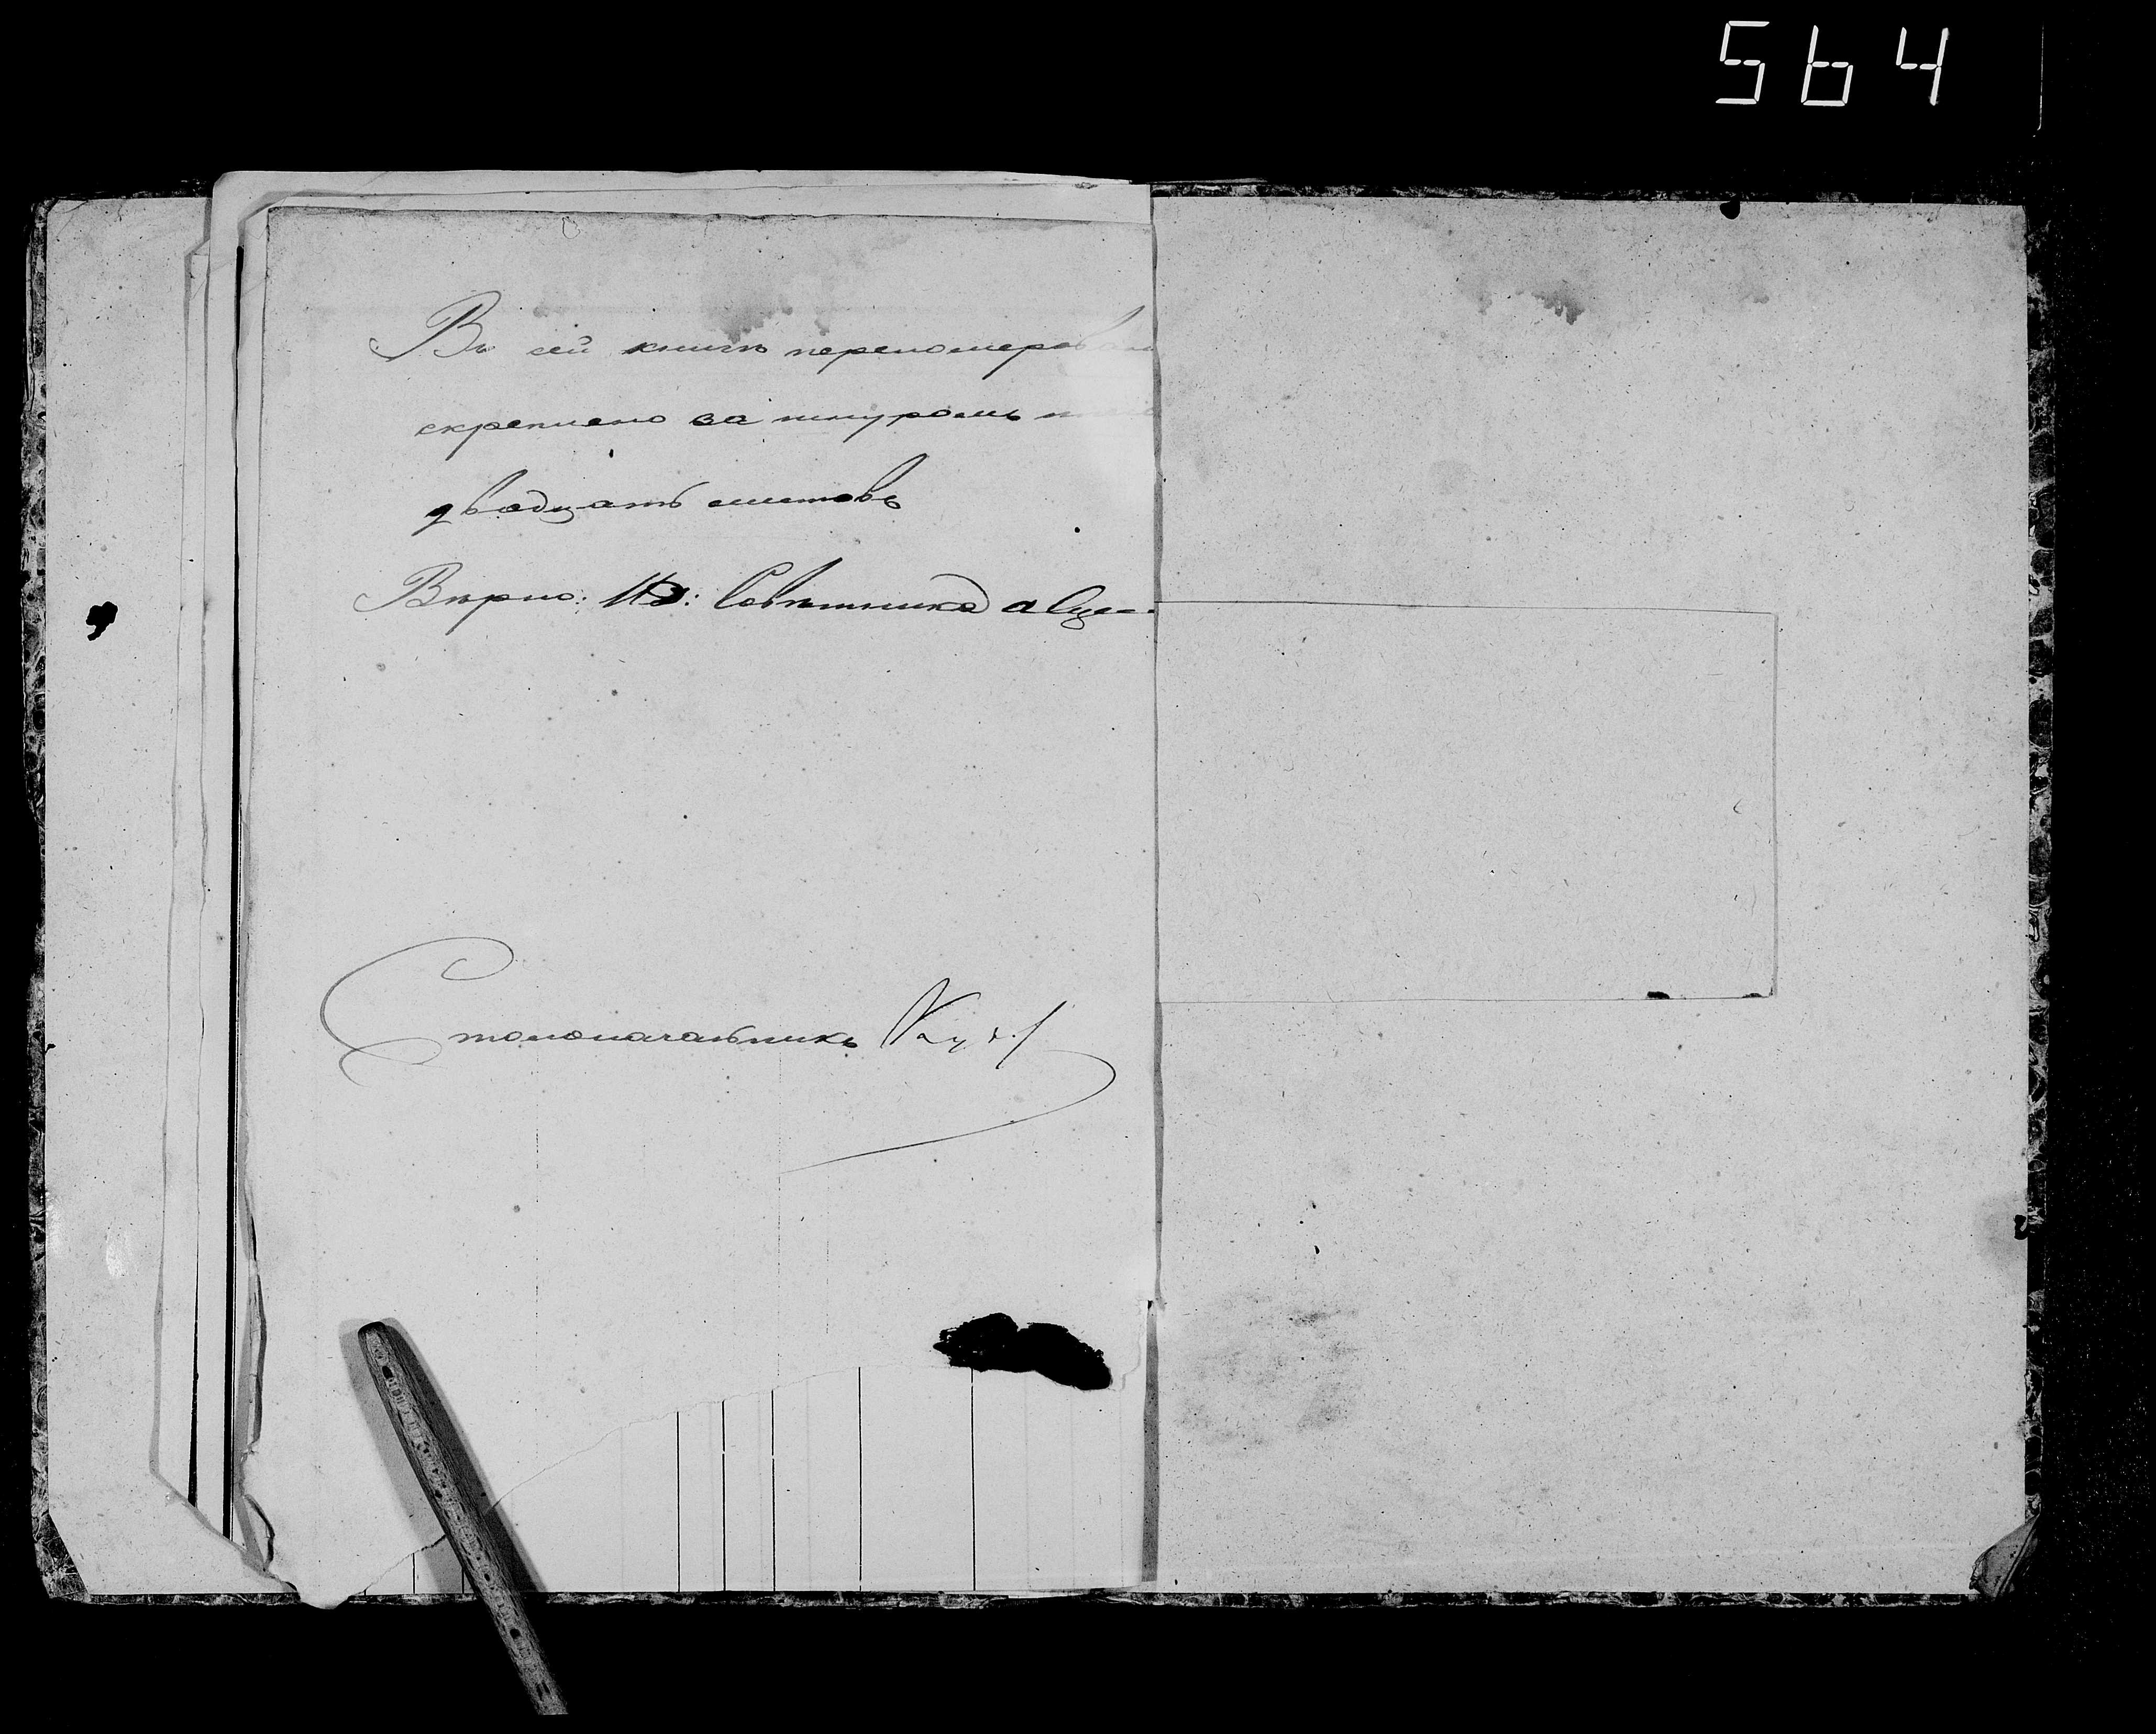 564
Въ сей книгѣ перенумерован
скреплено за шнуромъ
двадцать листовъ
Вѣрно: И.Д: Совѣтника
Столоначальникъ